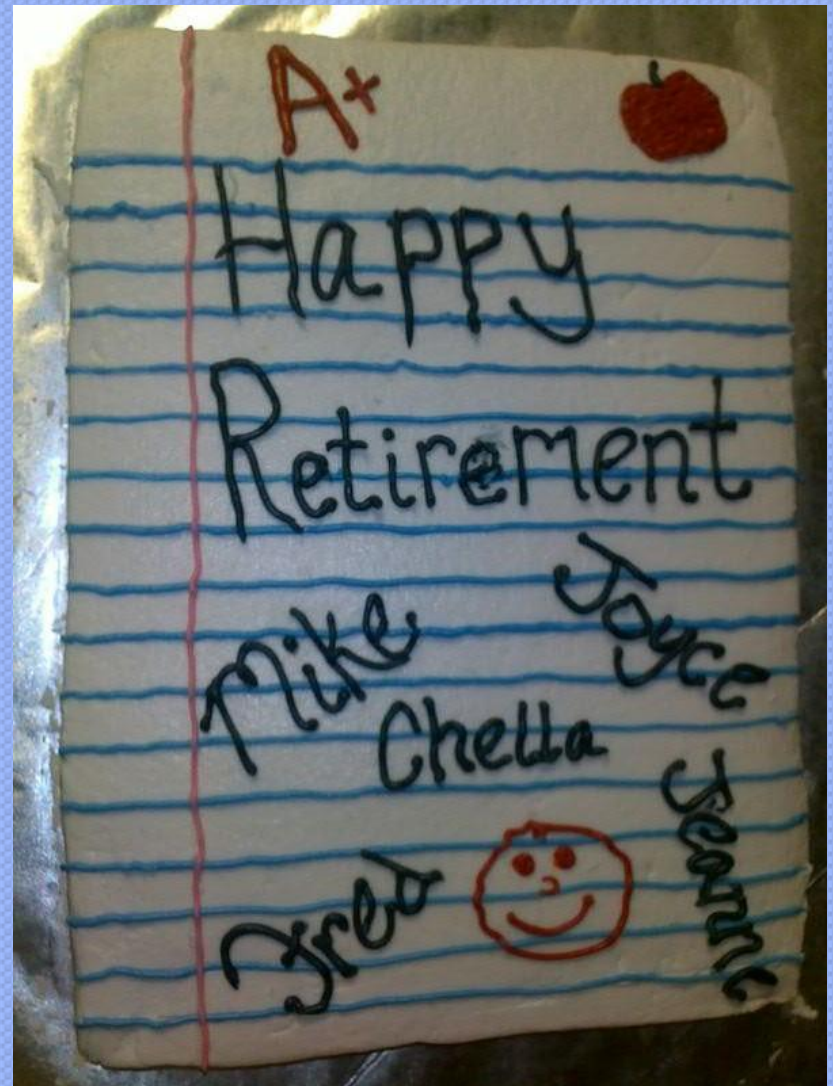 A+
Happy
Retirement
Mike
Joyce
Chella
Jeanne
Fred